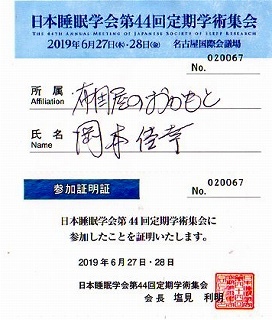 日本睡眠学会第44回定期学術集会
THE 44TH ANNUAL MEETING OF JAPANESE SOCIETY OF SLEEP RESEARCH
2019年6月27日(木)・28日(金) 名古屋国際会議場
No. 020067
所属 布団屋のおかもと
Affiliation
氏名 岡本佳幸
Name
No. 020067
参加証明証
日本睡眠学会第44回定期学術集会に
参加したことを証明いたします。
2019年6月27日・28日
日本睡眠学会第44回定期学術集会
会長 塩見 利明